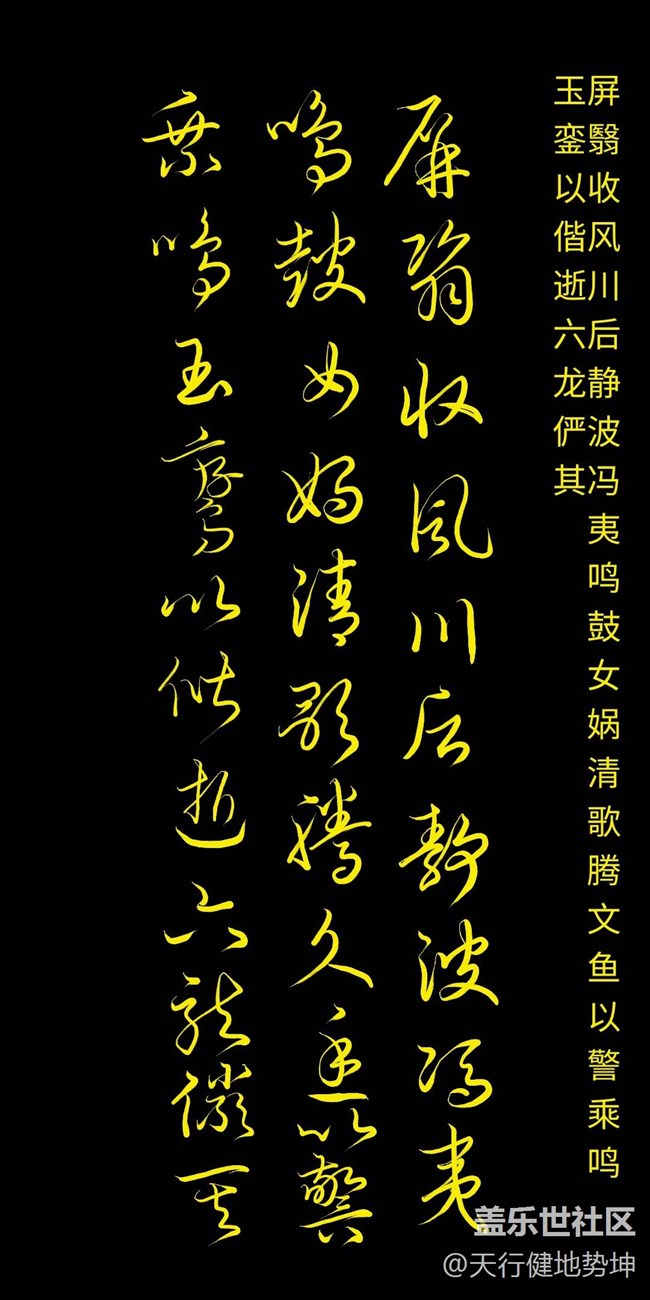 屏翳收风川后静波冯夷鸣鼓女娲清歌腾文鱼以警乘鸣
玉銮以偕逝六龙俨其
屏翳收风川后静波冯夷
鸣鼓女娲清歌腾文鱼以警
乘鸣玉鸾以偕逝六龙俨其
盖乐世社区
@天行健地势坤